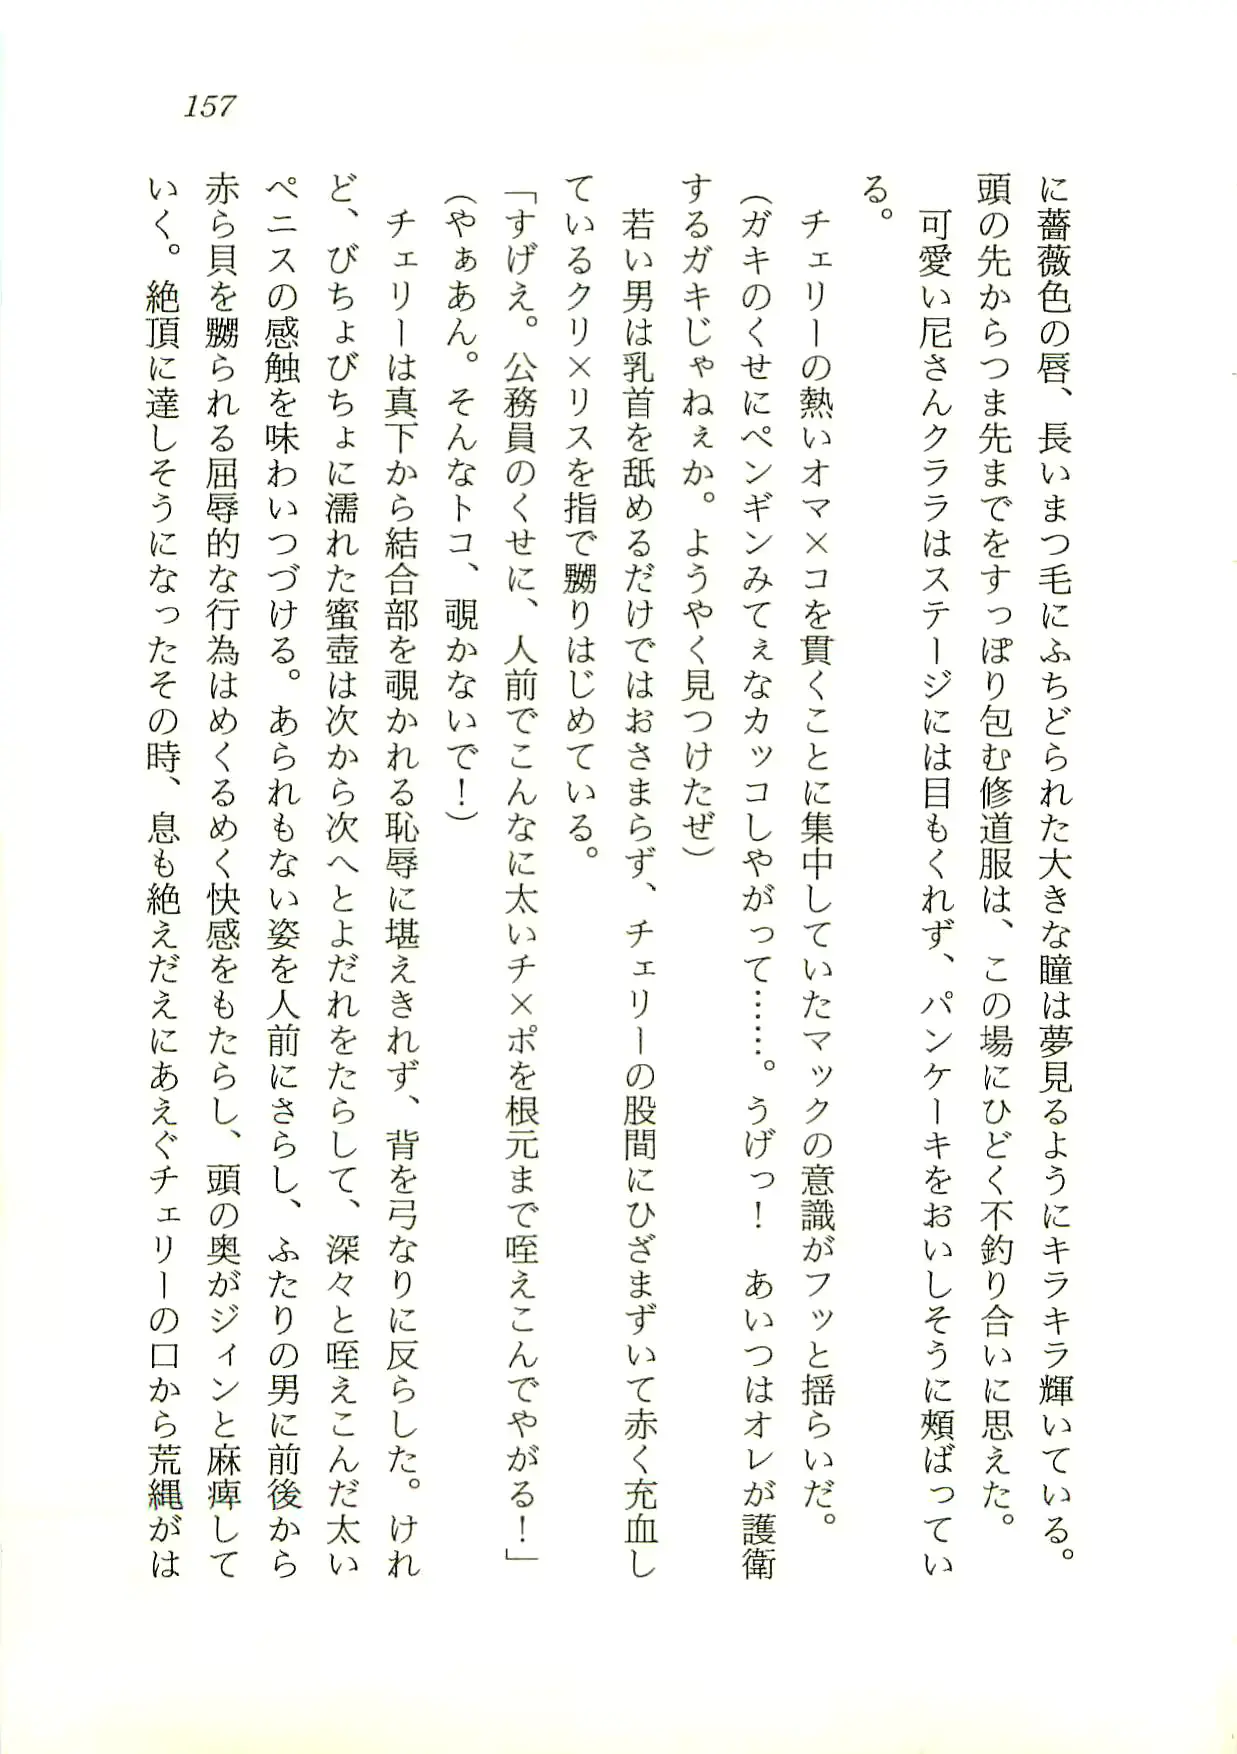 157
に薔薇色の唇、長いまつ毛にふちどられた大きな瞳は夢見るようにキラキラ輝いている。
頭の先からつま先までをすっぽり包む修道服は、この場にひどく不釣り合いに思えた。
可愛い尼さんクララはステージには目もくれず、パンケーキをおいしそうに頬ばってい
る。
チェリーの熱いオマ×コを貫くことに集中していたマックの意識がフッと揺らいだ。
(ガキのくせにペンギンみてぇなカッコしやがって……。うげっ!　あいつはオレが護衛
するガキじゃねぇか。ようやく見つけたぜ)
若い男は乳首を舐めるだけではおさまらず、チェリーの股間にひざまずいて赤く充血し
ているクリ×リスを指で嬲りはじめている。
「すげえ。公務員のくせに、人前でこんなに太いチ×ポを根元まで咥えこんでやがる!」
(やぁあん。そんなトコ、覗かないで!)
チェリーは真下から結合部を覗かれる恥辱に堪えきれず、背を弓なりに反らした。けれ
ど、びちょびちょに濡れた蜜壺は次から次へとよだれをたらして、深々と咥えこんだ太い
ペニスの感触を味わいつづける。あられもない姿を人前にさらし、ふたりの男に前後から
赤ら貝を嬲られる屈辱的な行為はめくるめく快感をもたらし、頭の奥がジィンと麻痺して
いく。絶頂に達しそうになったその時、息も絶えだえにあえぐチェリーの口から荒縄がは